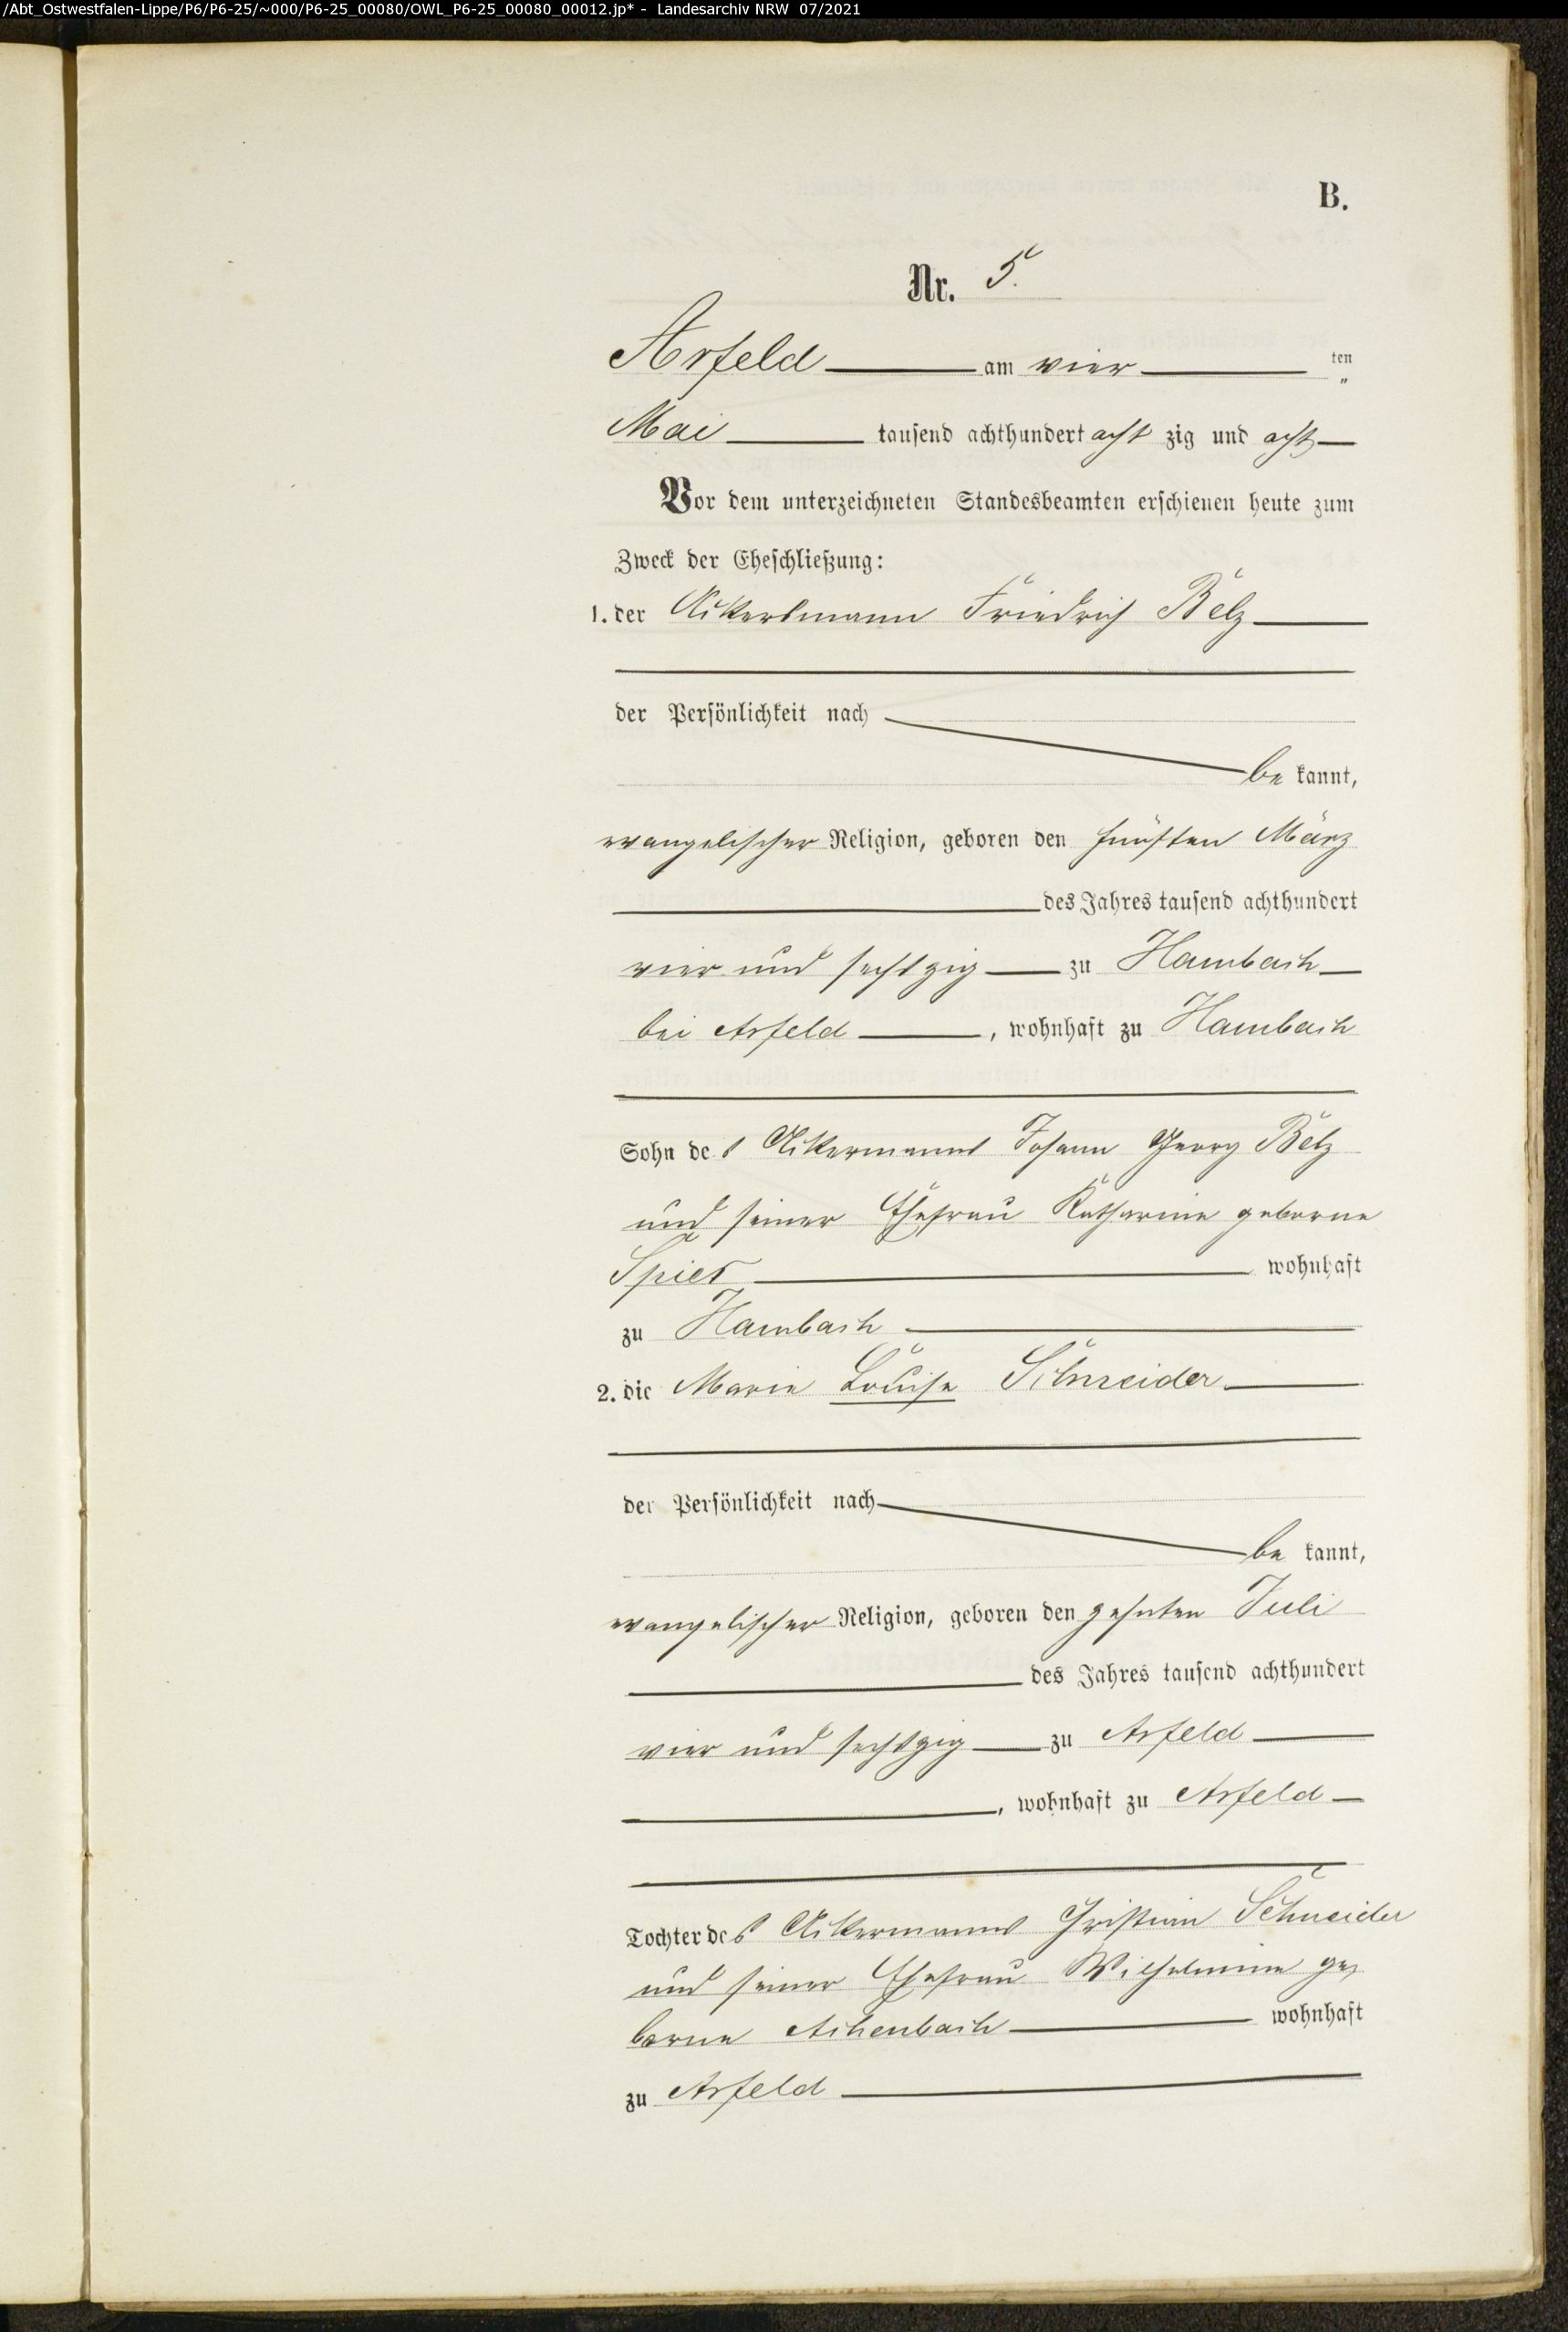 /Abt_Ostwestfalen-Lippe/P6/P6-25/~000/P6-25_00080/OWL_P6-25_00080_00012.jp* - Landesarchiv NRW 07/2021
B.
Nr. 5.
Arfeld am vier ten
Mai tausend achthundert acht zig und acht
Vor dem unterzeichneten Standesbeamten erschienen heute zum
Zweck der Eheschließung:
1. der Ackersmann Friedrich Belz
der Persönlichkeit nach
be kannt,
evangelischer Religion, geboren den fünften März
des Jahres tausend achthundert
vier und sechszig zu Hambach
bei Arfeld, wohnhaft zu Hambach
Sohn des Ackermanns Johann Georg Belz
und seiner Ehefrau Katharine geborne
Spies wohnhaft
zu Hambach
2. die Marie Louise Schneider
der Persönlichkeit nach
be kannt,
evangelischer Religion, geboren den zehnten Juli
des Jahres tausend achthundert
vier und sechszig zu Arfeld
, wohnhaft zu Arfeld
Tochter des Ackermanns Christian Schneider
und seiner Ehefrau Wilhelmine ge
borne Achenbach wohnhaft
zu Arfeld